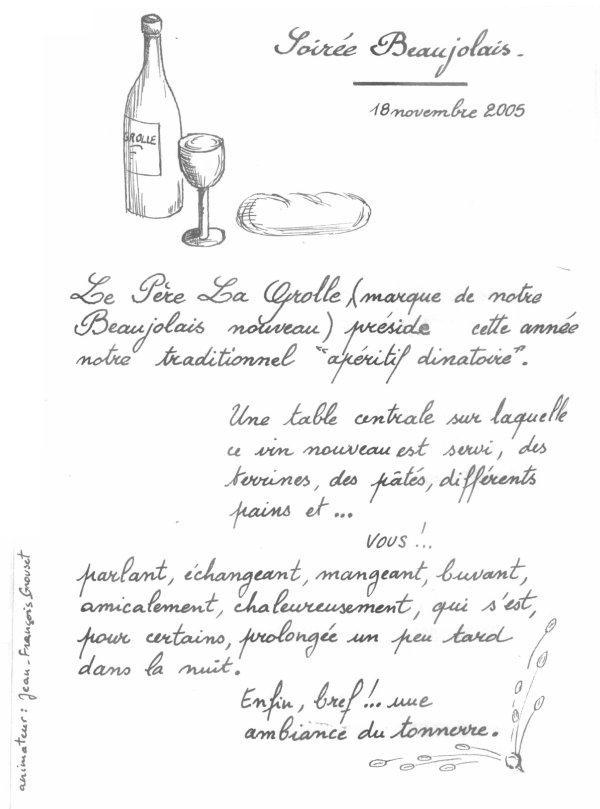 Soirée Beaujolais.
18 novembre 2005
GROLLE
Le Père La Grolle (marque de notre
Beaujolais nouveau) préside cette année
notre traditionnel "apéritif dinatoire".
Une table centrale sur laquelle
ce vin nouveau est servi, des
terrines, des pâtés, différents
pains et ...
VOUS !..
parlant, échangeant, mangeant, buvant,
amicalement, chaleureusement, qui s'est,
pour certains, prolongée un peu tard
dans la nuit.
Enfin, bref !.. une
ambiance du tonnerre.
animateur : Jean-François Grouset